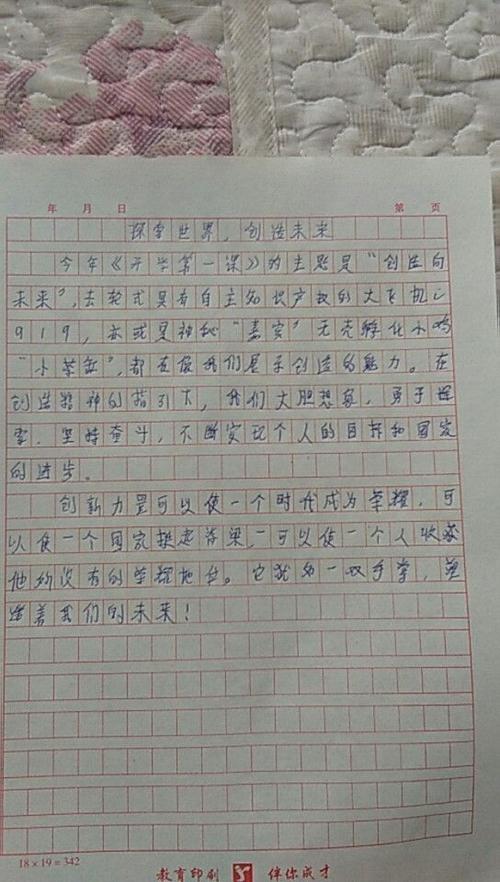 年 月 日 第 页
探索世界，创造未来
今年《开学第一课》的主题是“创造向
未来”，去轮式具有自主知识产权的大飞机C
919，亦或是神秘“嘉宾”无壳孵化小鸡
“小荣缶”，都在像我们展示创造的魅力。在
创造精神的指引下，我们大胆想象，勇于探
索，坚持奋斗，不断实现个人的目标和国家
的进步。
创新力量可以使一个时代成为荣耀，可
以使一个国家挺起脊梁，可以使一个人收获
他的没有的荣耀地位。它犹如一双手掌，塑
造着我们的未来！
18×19=342
教育印刷 伴你成才